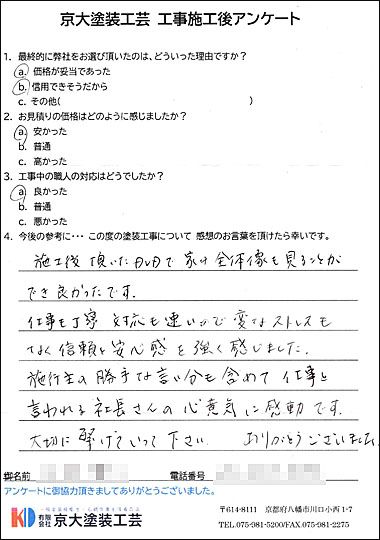 京大塗装工芸 工事施工後アンケート
1. 最終的に弊社をお選び頂いたのは、どういった理由ですか?
a. 価格が妥当であった
b. 信用できそうだから
c. その他( )
2. お見積りの価格はどのように感じましたか?
a. 安かった
b. 普通
c. 高かった
3. 工事中の職人の対応はどうでしたか?
a. 良かった
b. 普通
c. 悪かった
4. 今後の参考に・・・ この度の塗装工事について 感想のお言葉を頂けたら幸いです。
施工後 頂いたDVDで 家の全体像も見ることが
でき良かったです。
仕事も丁寧 対応も速いので変なストレスも
なく信頼と安心感を強く感じました。
施行主の勝手な言い分も含めて 仕事と
言われる社長さんの心意気に感動です。
大切に 繋げていって下さい ありがとうございました
御名前 電話番号
アンケートに御協力頂きましてありがとうございました。
KD 有限会社 京大塗装工芸
〒614-8111 京都府八幡市川口小西1-7
TEL.075-981-5200/FAX.075-981-2275